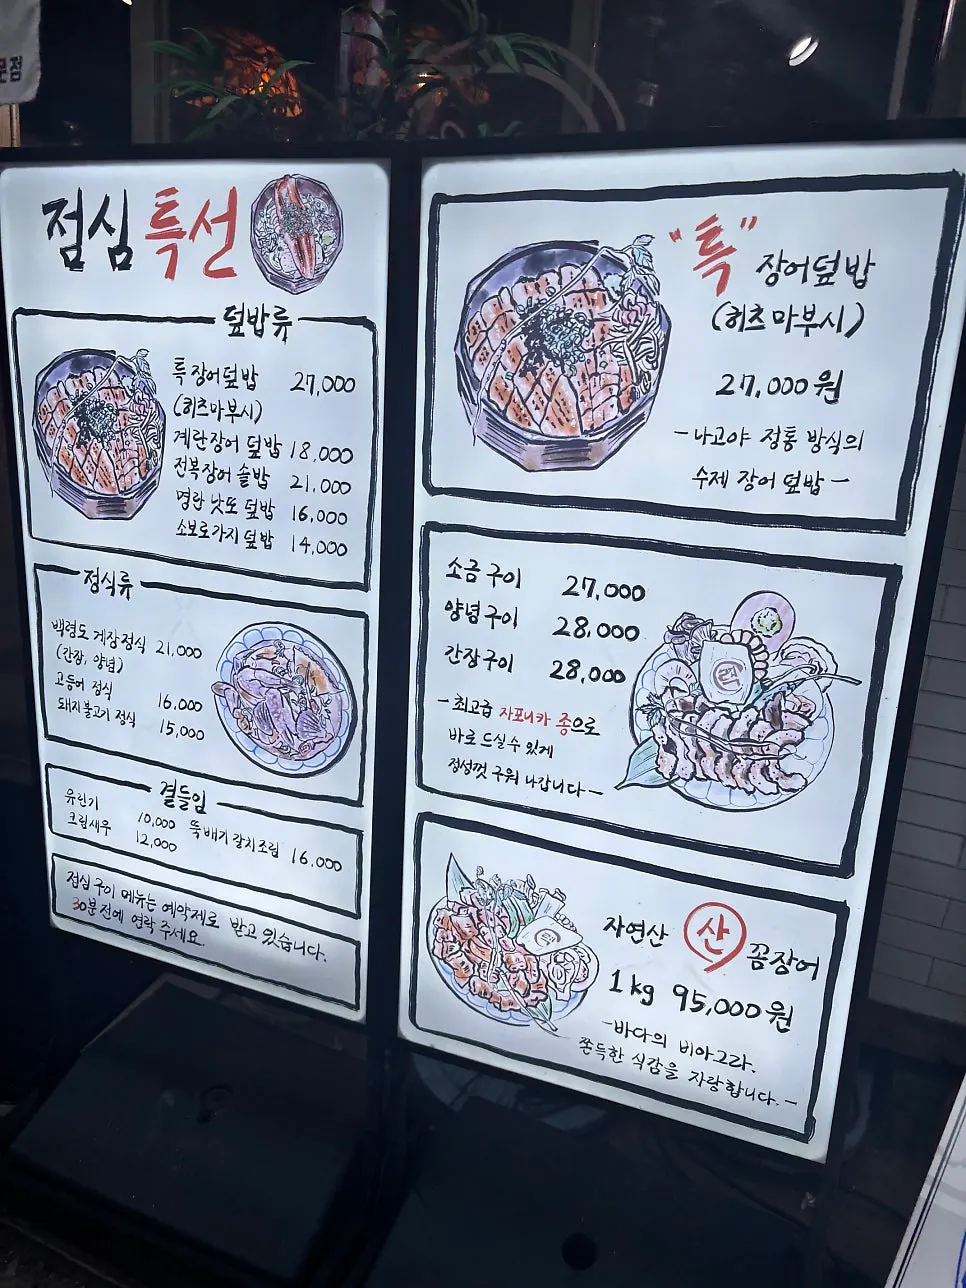 문점
점심 특선
덮밥류
특장어덮밥 27,000
(히츠마부시)
계란장어 덮밥 18,000
전복장어 솥밥 21,000
명란 낫또 덮밥 16,000
소보로가지 덮밥 14,000
정식류
백령도 게장정식 21,000
(간장, 양념)
고등어 정식 16,000
돼지불고기 정식 15,000
곁들임
유린기 10,000
크림새우 12,000
뚝배기 갈치조림 16,000
점심 구이 메뉴는 예약제로 받고 있습니다.
30분 전에 연락 주세요.
"특" 장어덮밥
(히츠마부시)
27,000원
-나고야 정통 방식의
수제 장어 덮밥-
소금구이 27,000
양념구이 28,000
간장구이 28,000
-최고급 자포니카 종으로
바로 드실수 있게
정성껏 구워 나갑니다-
자연산 산 꼼장어
1kg 95,000원
-바다의 비아그라.
쫀득한 식감을 자랑합니다.-